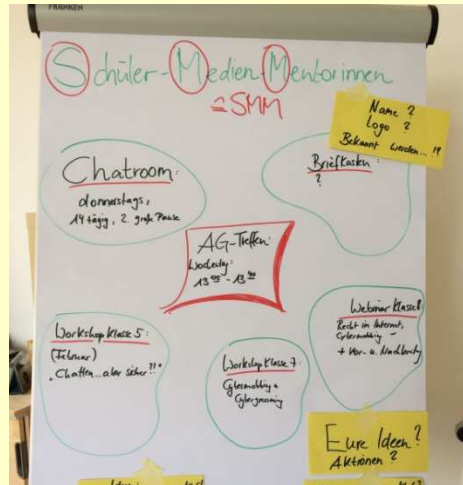 FRANKEN
Schüler-Medien-Mentorinnen
= SMM
Name ?
Logo ?
Bekannt werden... !?
Chatroom:
donnerstags,
14 tägig, 2. große Pause
Briefkasten:
?
AG-Treffen:
13 - 13
Workshop Klasse 5:
(Februar)
"Chatten... aber sicher?!"
Workshop Klasse 7:
Cybermobbing +
Cybergrooming
Webinar Klasse 8:
Recht im Internet,
Cybermobbing -
+ Vor- u. Nachbereitg
Eure Ideen?
Aktionen?